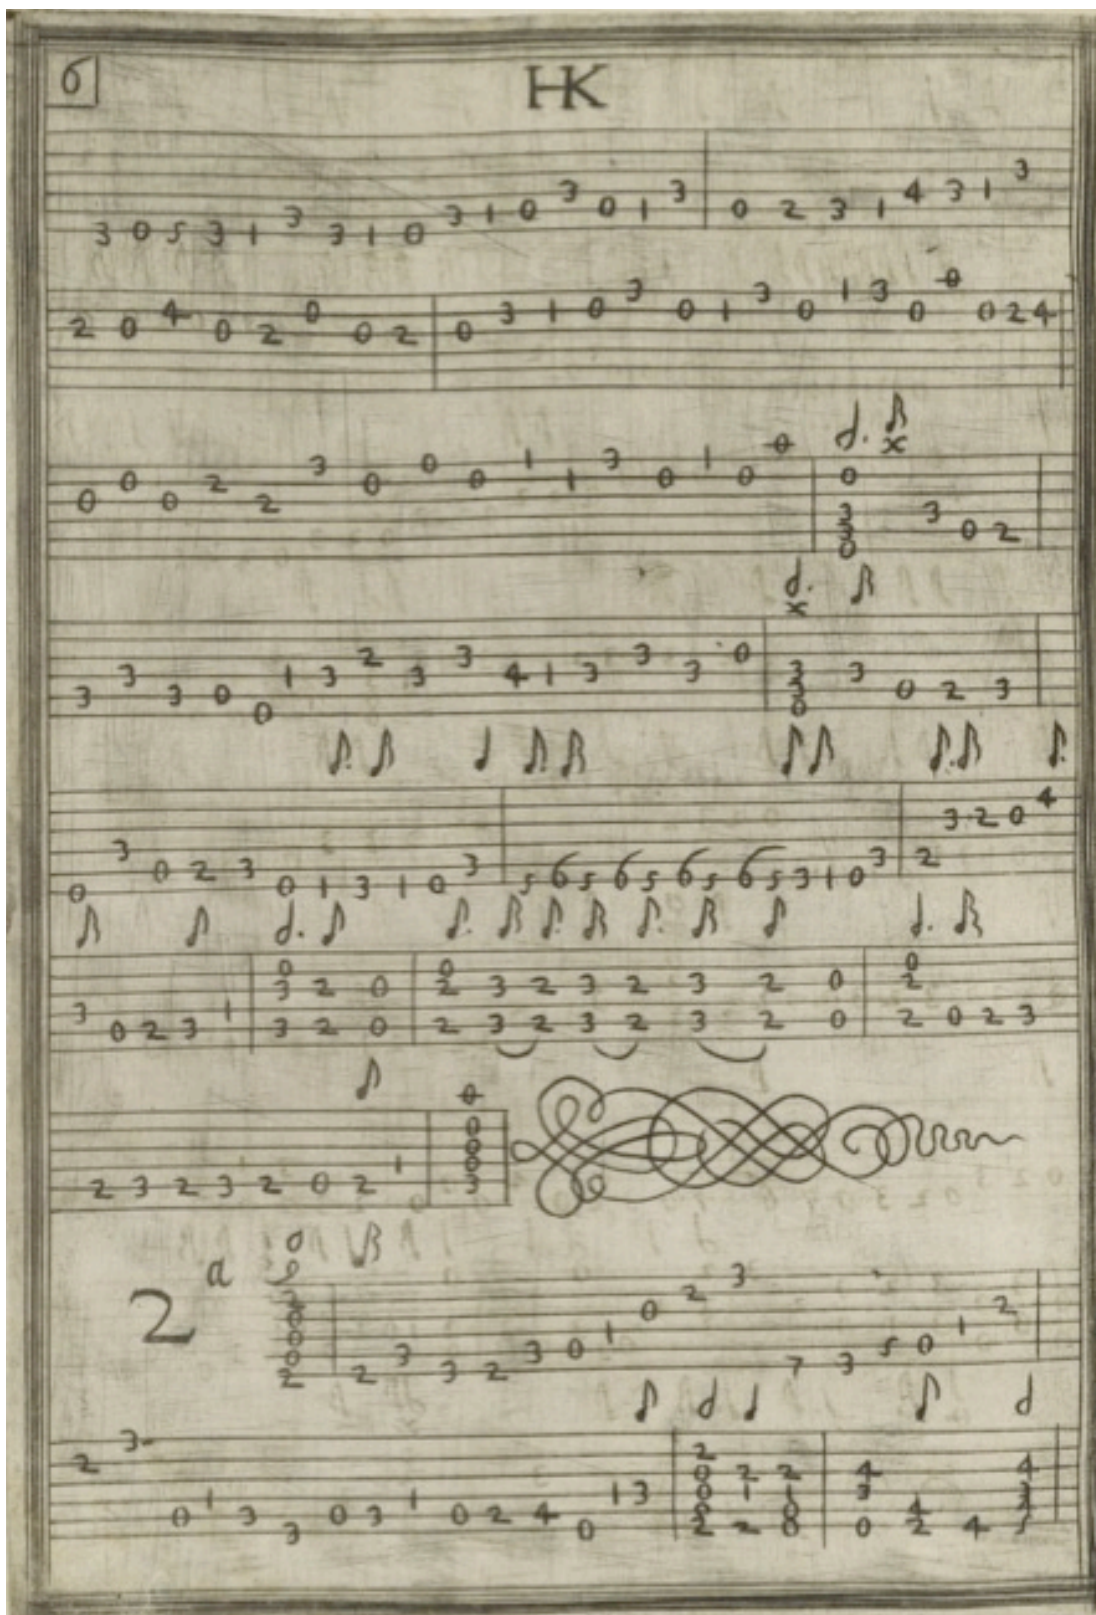 6
HK
3 0 5 3 1 3 3 1 0 3 1 0 3 0 1 3 0 2 3 1 4 3 1 3
2 0 4 0 2 0 0 2 0 3 1 0 3 0 1 3 0 1 3 0 0 0 2 4
0 0 0 2 2 3 0 0 0 1 1 3 0 1 0 0 x 0 3 3 0 3 0 2
3 3 3 0 0 1 3 2 3 3 4 1 3 3 3 0 x 3 3 0 3 0 2 3
0 3 0 2 3 0 1 3 1 0 3 5 6 5 6 5 6 5 6 5 3 1 0 3 2 3 2 0 4
3 0 2 3 1 0 3 3 2 2 0 0 0 2 2 3 3 2 2 3 3 2 2 3 3 2 2 0 0 0 2 2 0 2 3
2 3 2 3 2 0 2 1 0 0 0 0 3
2 a
2 0 0 0 2 2 3 3 2 3 0 1 0 2 3 7 3 5 0 1 2
2 3 0 1 3 3 0 3 1 0 2 4 0 1 3 2 0 0 2 2 1 2 2 4 3 0 4 2 4 4 3